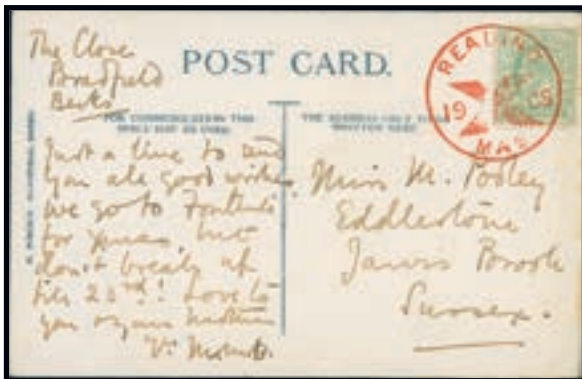 The Close
Bradfield
Berks
POST CARD.
FOR COMMUNICATION THIS
SPACE MAY BE USED.
THE ADDRESS ONLY TO BE
WRITTEN HERE.
READING
19 05
Just a line to send
you all good wishes,
we go to
for but
don't break up
till 20th! Love to
you & your Mother
Miss M. Pooley
Eddlestone
Jarvis Brook
Sussex.